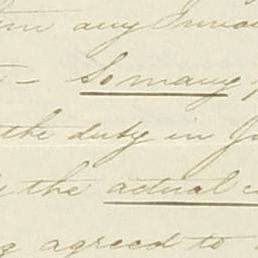 any
So many
the duty in
the actual
agreed to